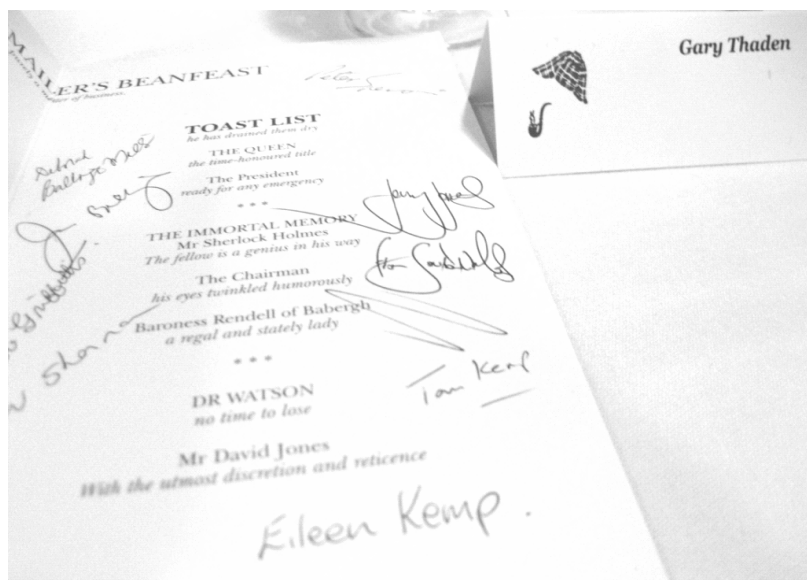 MAILER'S BEANFEAST
of business.
Gary Thaden
TOAST LIST
he has drained them dry
THE QUEEN
the time-honoured title
The President
ready for any emergency
* * *
THE IMMORTAL MEMORY
Mr Sherlock Holmes
The fellow is a genius in his way
The Chairman
his eyes twinkled humorously
Baroness Rendell of Babergh
a regal and stately lady
* * *
DR WATSON
no time to lose
Mr David Jones
With the utmost discretion and reticence
Deborah
Griffiths
Tom Kemp
Eileen Kemp.